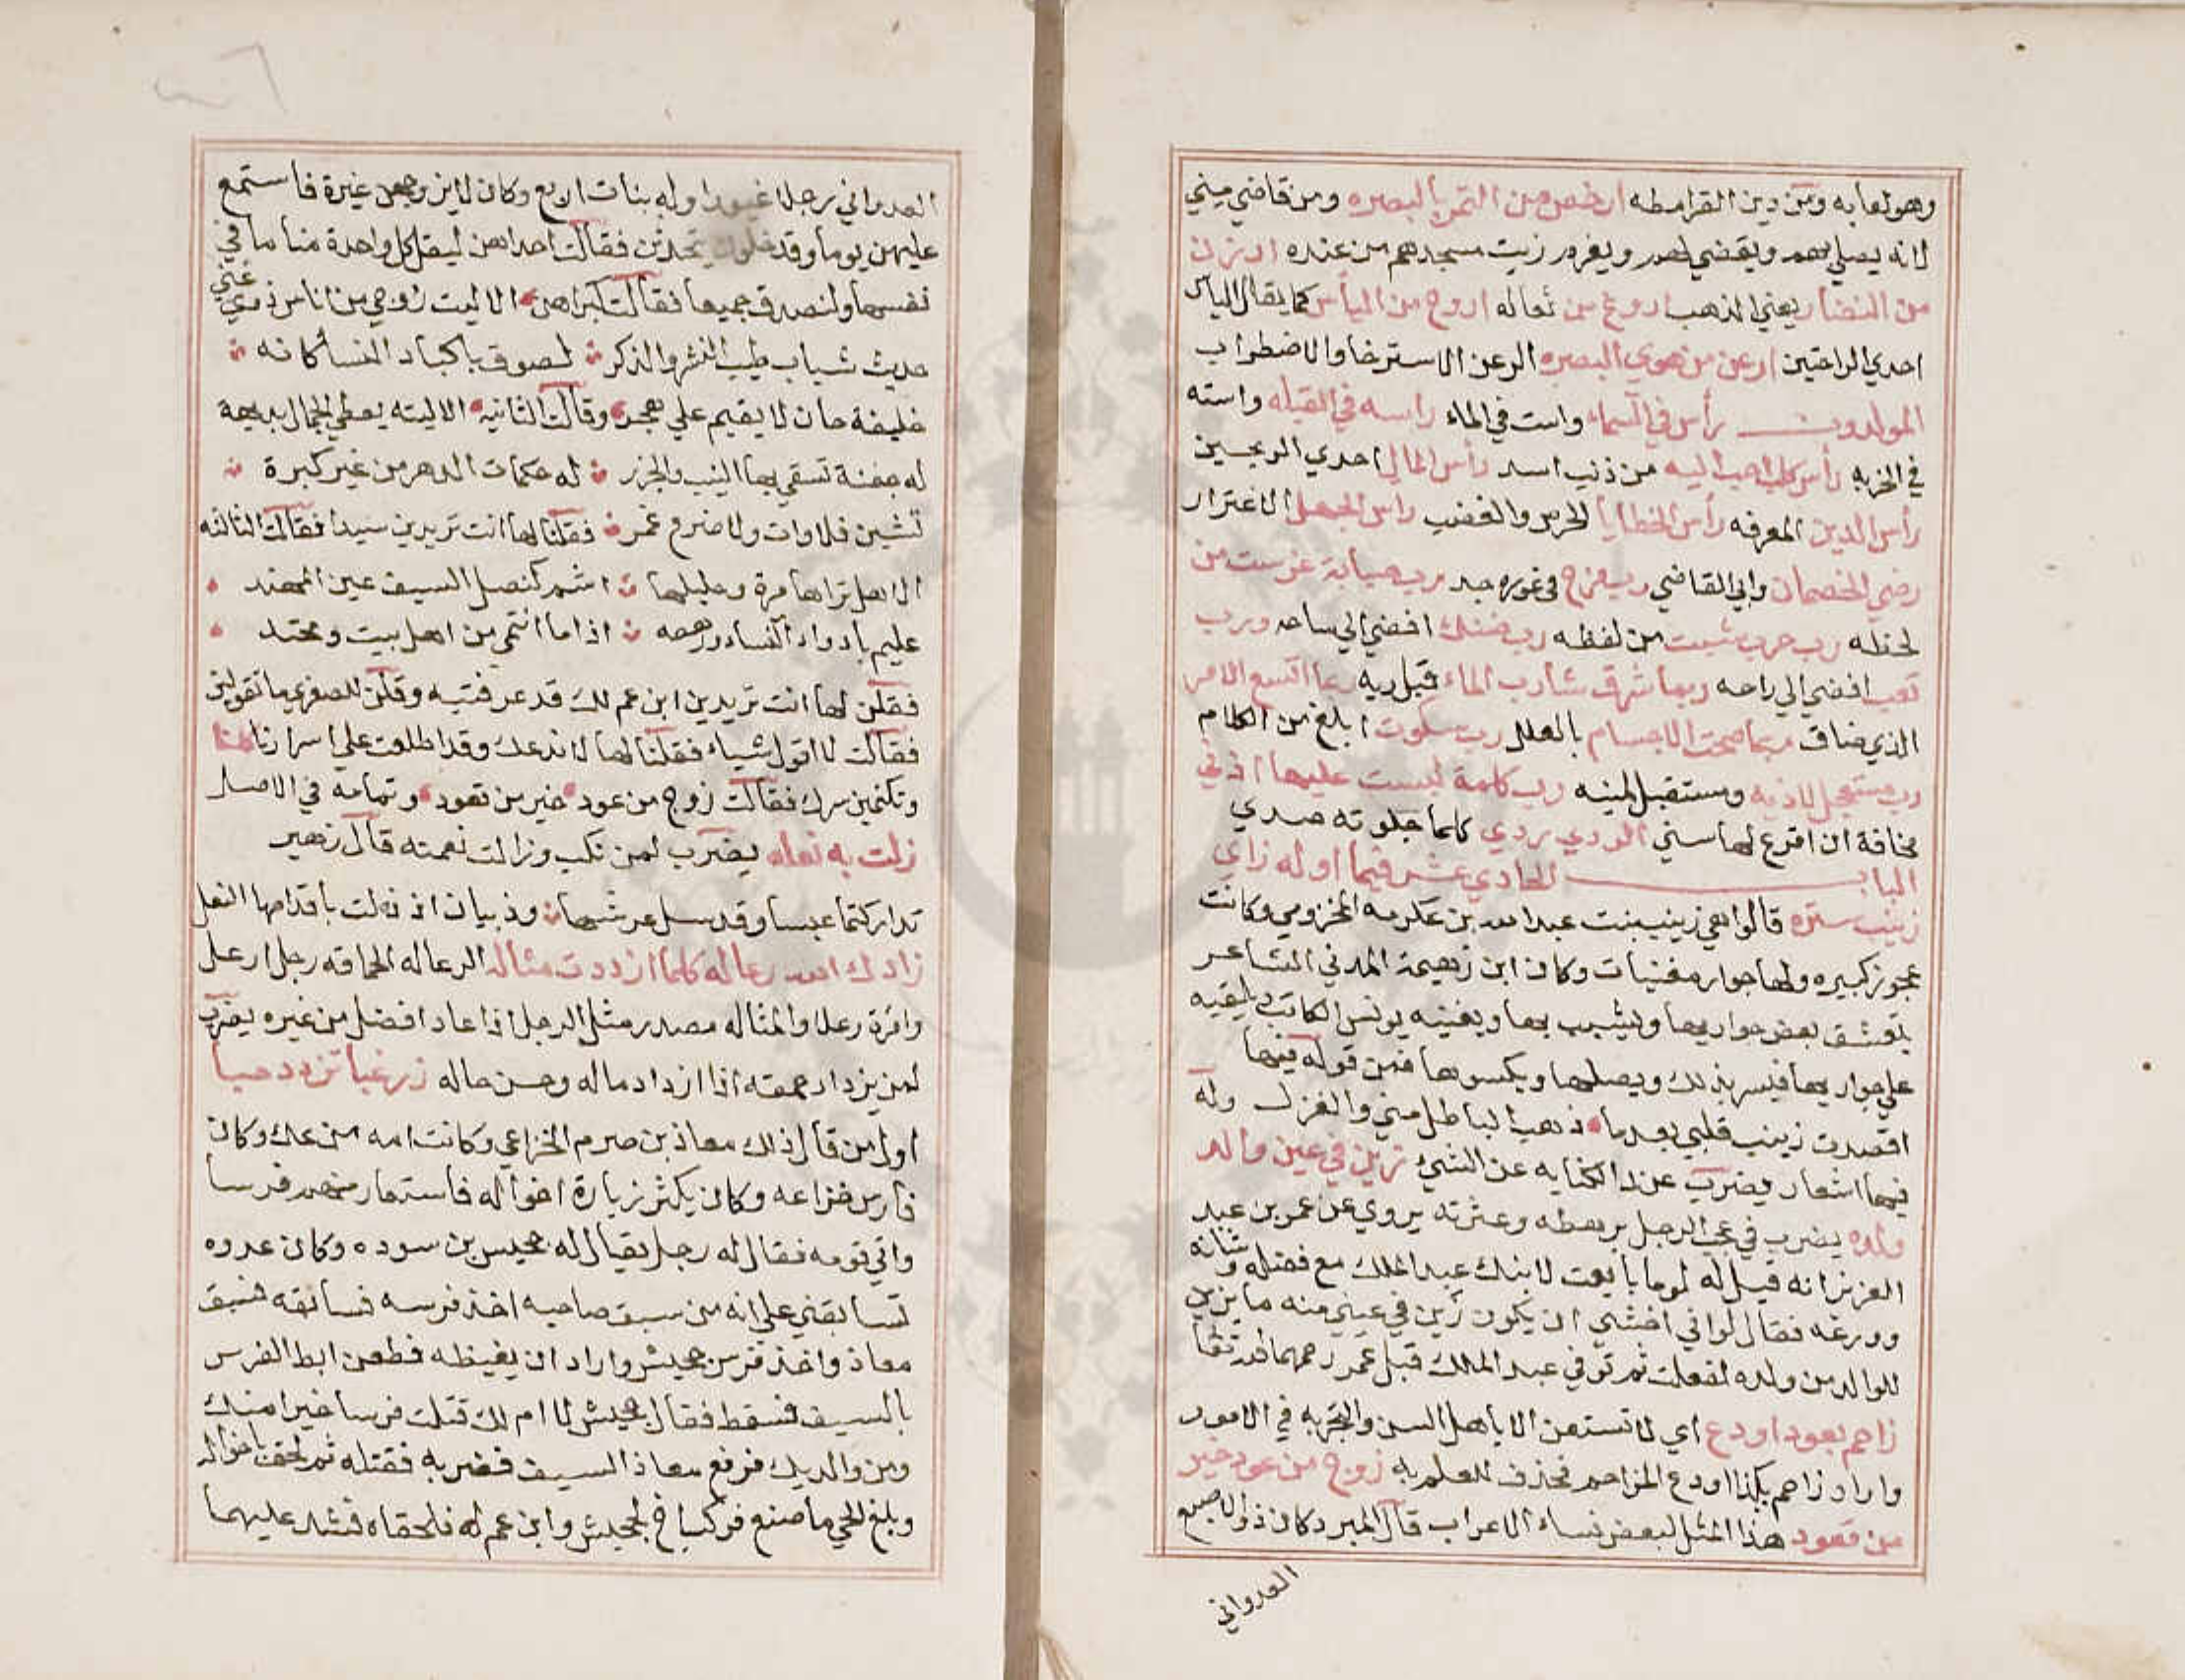 وهو لعابه ومن دين القرامطه ارخص من التمر بالبصره ومن قاضي مني
لانه يصلي بهم ويقضي لهم ويغرم زيت مسجدهم من عنده ارزن
من النضار يعني الذهب اروغ من ثعاله اروح من اليأس كما يقال الياس
احدي الراحتين ارعن من هوي البصره الرعن الاسترخا والاضطراب
المولدون رأس في السماء واست في الماء راسه في القبله واسته
في الخربه رأس كلب احب اليه من ذنب اسد رأس المال احدي الربحين
رأس الدين المعرفه رأس الخطايا الحرص والغضب راس الجهل الاغترار
رضي الخصمان وابي القاضي رب مزح في غوره جد رب صبابة غرست من
لحظه رب حرب شبت من لفظه رب ضنك افضي الي ساحه ورب
تعب افضي الي راحه وبما شرق شارب الماء قبل ريه ربما اتسع الامر
الذي ضاق ربما صحت الاجسام بالعلل رب سكوت ابلغ من الكلام
رب مستعجل لاذيه ومستقبل لمنيه رب كلمة لبست عليها اذني
مخافة ان اقرع لها سني الردي ردي كلما جلوته صدي
الباب الحادي عشر فيما اوله زاي
زينب ستره قالوا هي زينب بنت عبد الله بن عكرمه المخزومي وكانت
عجوز كبيره ولها جوار مغنيات وكان ابن زهيمة المدني الشاعر
يتعشق بعض جواريها ويشبب بها ويغنيه يونس الكاتب ويلقيه
علي جواريها فيسر بذلك ويصلها ويكسوها فمن قوله فيها
اقصدت زينب قلبي بعدما ذهب الباطل مني والغزل وله
فيها اشعار يضرب عند الكنايه عن الشيء زين في عين والد
ولده يضرب في عجب الرجل برهطه وعترته يروي عن عمر بن عبد
العزيز انه قيل له لوما بايعت لابنك عبد الملك مع فضله وشانه
وورعه فقال لو اني اخشي ان يكون زين في عيني منه ما يزين
للوالد من ولده لفعلت ثم توفي عبد الملك قبل عمر رحمهما الله تعا
زاحم بعود او دع أي لا تستعن الا باهل السن والتجربه في الامور
واراد زاحم بكذا او دع المزاحم فحذف للعلم به زوج من عود خير
من قعود هذا المثل لبعض نساء الاعراب قال المبرد كان ذو الاصبع
العدواني
العدواني رجلا غيورا وله بنات اربع وكان لا يزوجهن غيرة فاستمع
عليهن يوما وقد خلون يتحدثن فقالت احداهن ليقل كل واحدة منا ما في
نفسها ولنصدق جميعا فقالت كبراهن الا ليت زوجي من اناس ذوي غني
حديث شباب طيب النشر والذكر لصوق باكباد النسأ كانه
خليفة حان لا يقيم علي هجر وقالت الثانيه الا ليته يعطي الجمال بديهة
له جفنة تسقي بها النيب والجزر له حكمات الدهر من غير كبرة
تشين فلا وان ولا ضرع غمر فقلنا لها انت تريدين سيدا فقالت الثالثه
الا هل تراها مرة وحليلها اشم كنصل السيف عين المهند
عليم بادواء النساء ورهطه اذا ما انتمي من اهل بيت ومحتد
فقلن لها انت تريدين ابن عم لك قد عرفتيه وقلن للصغري ما تقولين
فقالت لا اقول شياء فقلنا لها لا ندعك وقد اطلعت علي اسرارنا
وتكتمين سرك فقالت زوج من عود خير من قعود وتمامه في الاصل
زلت به نعله يضرب لمن نكب وزالت نعمته قال زهير
تداركتما عبسا وقد سل عرشها وذبيان اذ زلت باقدامها النعل
زادك الله رعاله كلما ازددت مثاله الرعاله الحماقه رجل ارعل
وامرة رعلا والمثاله مصدر مثل الرجل اذا عاد افضل من غيره يضرب
لمن يزداد حمقه اذا ازداد ماله وحسن حاله زر غبا تزدد حبا
اول من قال ذلك معاذ بن صرم الخزاعي وكانت امه من عك وكان
فارس خزاعه وكان يكثر زيارة اخواله فاستعار منهم فرسا
واتي قومه فقال له رجل يقال له جحيش بن سوده وكان عدوه
تسابقني علي انه من سبق صاحبه اخذ فرسه فسابقه فسبق
معاذ واخذ فرس جحيش واراد ان يغيظه فطعن ابط الفرس
بالسيف فسقط فقال جحيش لا ام لك قتلت فرسا خيرا منك
ومن والديك فرفع معاذ السيف فضربه فقتله ثم لحق باخواله
وبلغ الحي ما صنع فركب اخ لجحيش وابن عم له فلحقاه فشد عليهما